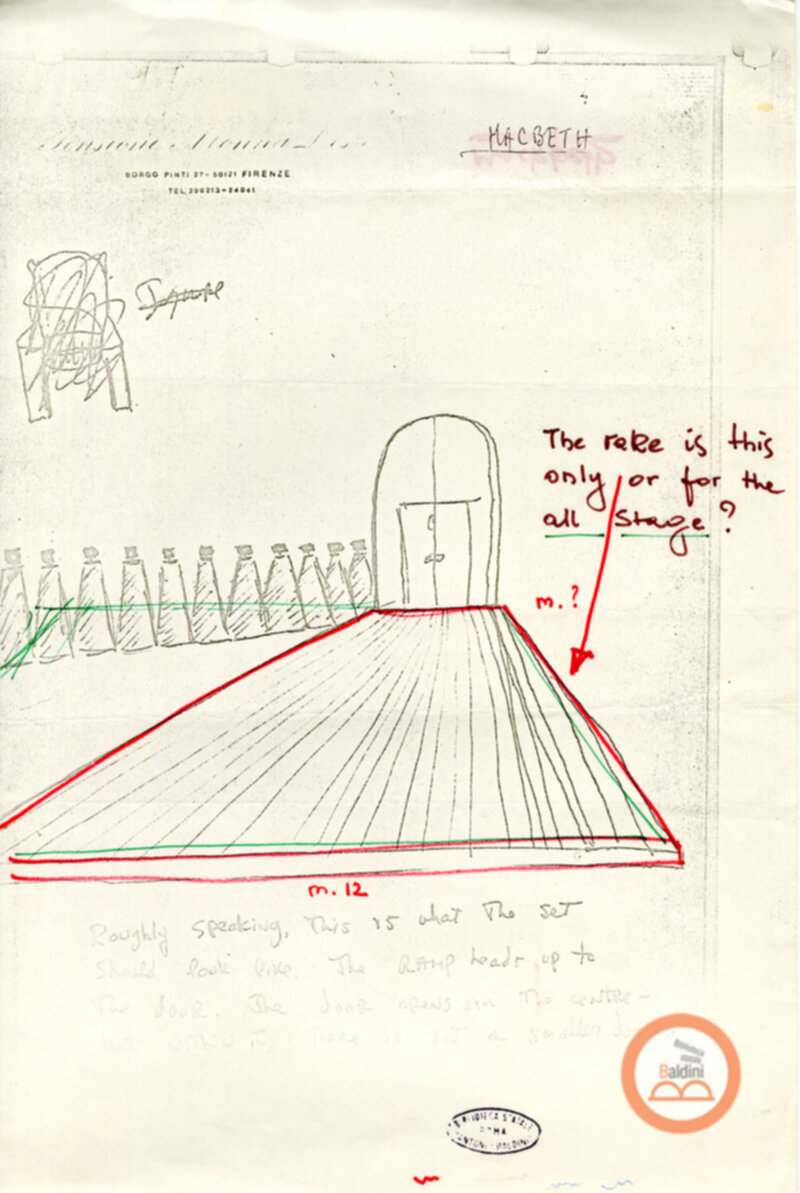 MACBETH
BORGO PINTI 27 - 50121 FIRENZE
TEL. 296213-24041
The rake is this
only or for the
all Stage?
m. ?
m. 12
Roughly speaking, This is what The set
should look like. The RAMP leads up to
The door. The door opens in The centre -
but within it There is set a smaller
Biblioteca
statale
Baldini
BIBLIOTECA STATALE
ROMA
ANTONIO BALDINI